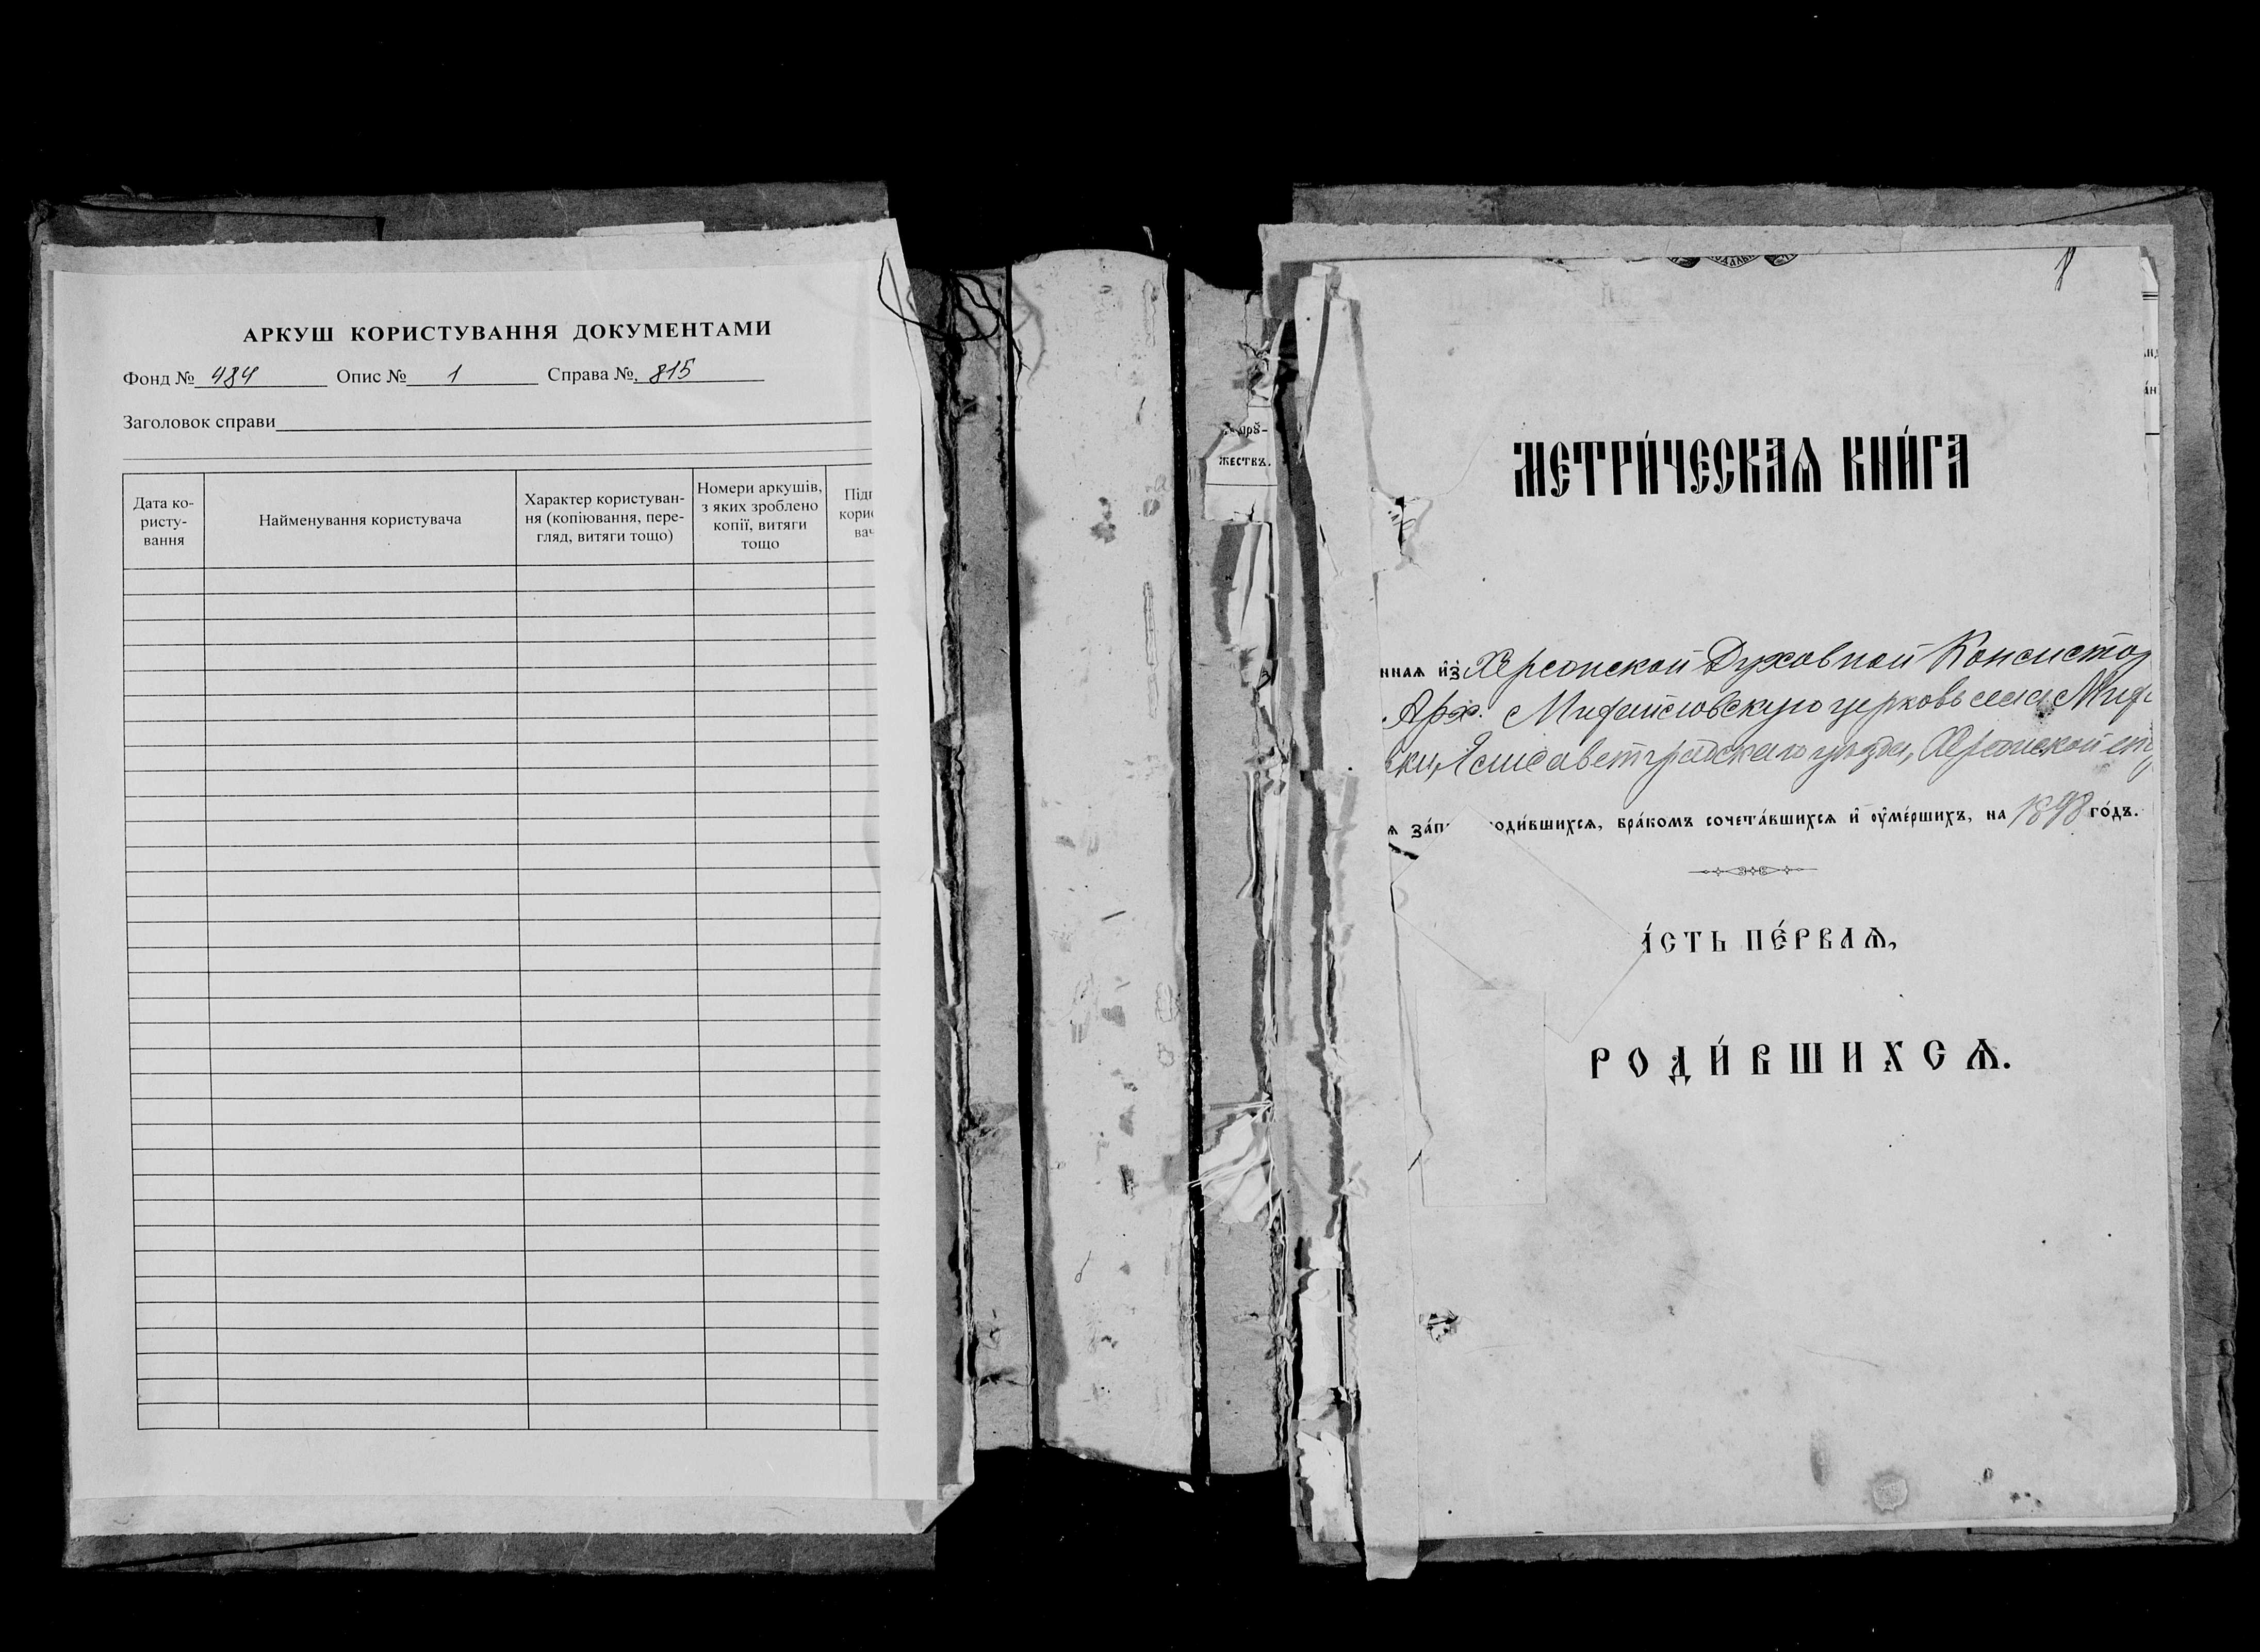 АРКУШ КОРИСТУВАННЯ ДОКУМЕНТАМИ
Фонд № 484 Опис № 1 Справа № 815
Заголовок справи
Дата ко-
ристу-
вання
Найменування користувача
Характер користуван-
ня (копіювання, пере-
гляд, витяги тощо)
Номери аркушів,
з яких зроблено
копії, витяги
тощо
жествъ.
МЕТРИ́ЧЕСКАѦ КНИ́ГА
ннаѧ и҆з̾ Херсонской Духовной Консистор
Арх. Михайловскую церковь села
ски, Елисаветградскаго уѣзда, Херсонской
ѧ за́п оди́вшихсѧ, бра́комъ сочета́вшихсѧ и҆ оу҆ме́ршихъ, на 1898 го́дъ.
а́сть пе́рваѧ,
РОДИ́ВШИХСѦ.